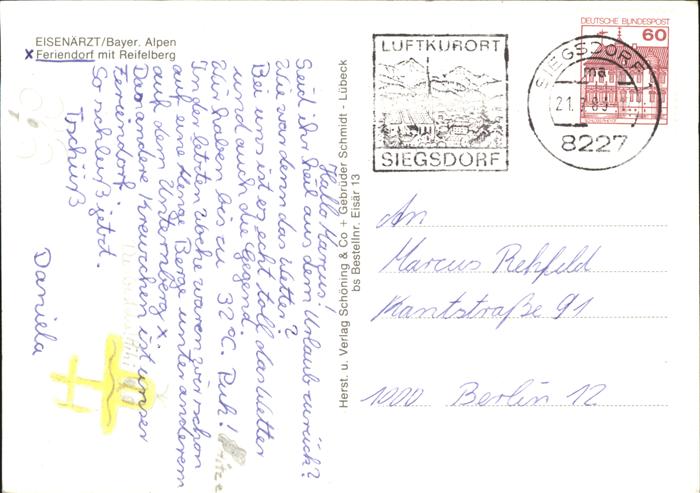 EISENÄRZT/Bayer. Alpen
x Feriendorf mit Reifelberg
Hallo Marcus!
Seid ihr heil aus dem Urlaub zurück?
Wie war denn das Wetter?
Bei uns ist es echt toll das Wetter
und auch die Gegend.
Wir haben bis zu 32°C. Puh!
Hitze
In der letzten Woche waren wir schon
auf eine Menge Berge unter anderem
auf dem Unternberg x.
Das andere Kreuzchen ist unser
Feriendorf.
So schluß jetzt.
Tschüß
Daniela
Herst. u. Verlag Schöning & Co + Gebrüder Schmidt - Lübeck
bs Bestellnr. Eisär 13
LUFTKURORT
SIEGSDORF
SIEGSDORF 1
ma
21.7.83
8227
DEUTSCHE BUNDESPOST
60
An
Marcus Rehfeld
Kantstraße 91
1000 Berlin 12